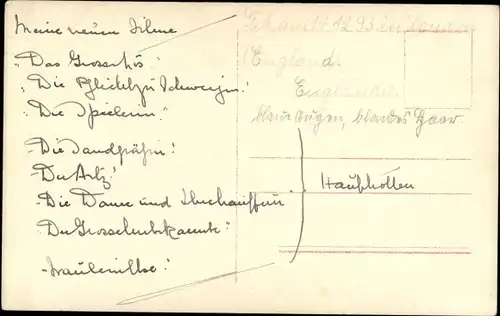 Meine neuen Filme
"Das Grosse
"Die Pflicht zu schweigen"
"Die Spielerin"
"Die Sandgräfin"
"Der Arzt"
"Die Dame und ihr Chauffeur"
"Der Grosse Unbekannte"
"Fräulein Else"
in London
(England)
England
blaue Augen, blondes Haar
Hauptrollen